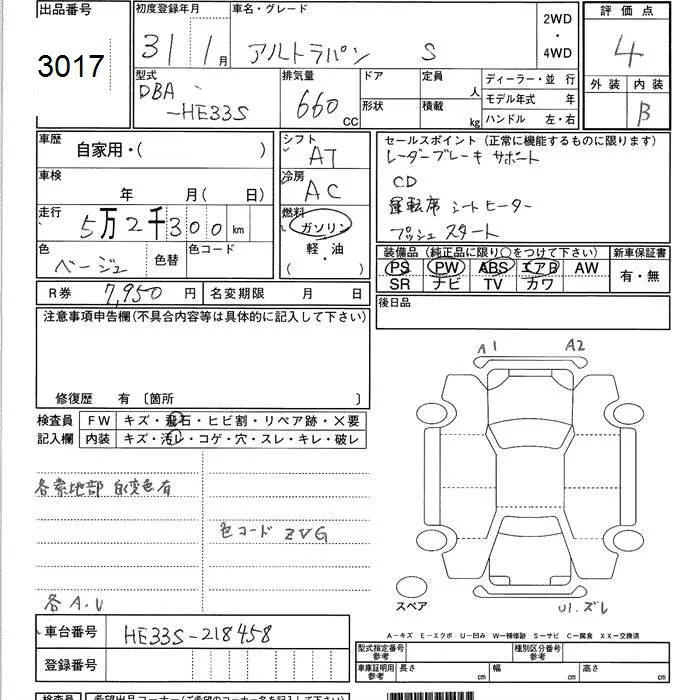 出品番号 初度登録年月 車名・グレード 2WD・4WD 評価点
3017 31/1月 アルトラパン S 4
型式 排気量 ドア 定員 人 ディーラー・並 行 外装 内装
DBA-HE33S 660cc 形状 積載 kg モデル年式 年 B
ハンドル 左・右
車歴 自家用・( ) シフト AT セールスポイント (正常に機能するものに限ります)
レーダーブレーキ サポート
車検 年 月( 日) 冷房 AC CD
運転席 シートヒーター
走行 5万2千300km 燃料 ガソリン プッシュ スタート
軽・油
( )
色 ベージュ 色替 色コード 装備品 (純正品に限り○をつけて下さい) 新車保証書
PS PW ABS エアB AW 有・無
SR ナビ TV カワ
R券 7,950円 名変期限 月 日 後日品
注意事項申告欄(不具合内容等は具体的に記入して下さい)
修復歴 有 〔箇所 〕
A1 A2
検査員記入欄 FW キズ・飛石・ヒビ割・リペア跡・×要
内装 キズ・汚レ・コゲ・穴・スレ・キレ・破レ
各素地部 白変色有
色コード ZVG
各A.U
スペア U1.ズレ
A-キズ E-エクボ U-凹み W-補修跡 S-サビ C-腐食 XX-交換済
車台番号 HE33S-218458
登録番号
型式指定番号 参考 種別区分番号 参考
車庫証明用 参考 長さ cm 幅 cm 高さ cm
検査員 希望出品コーナー(ご希望のコーナー名を記入して下さい)